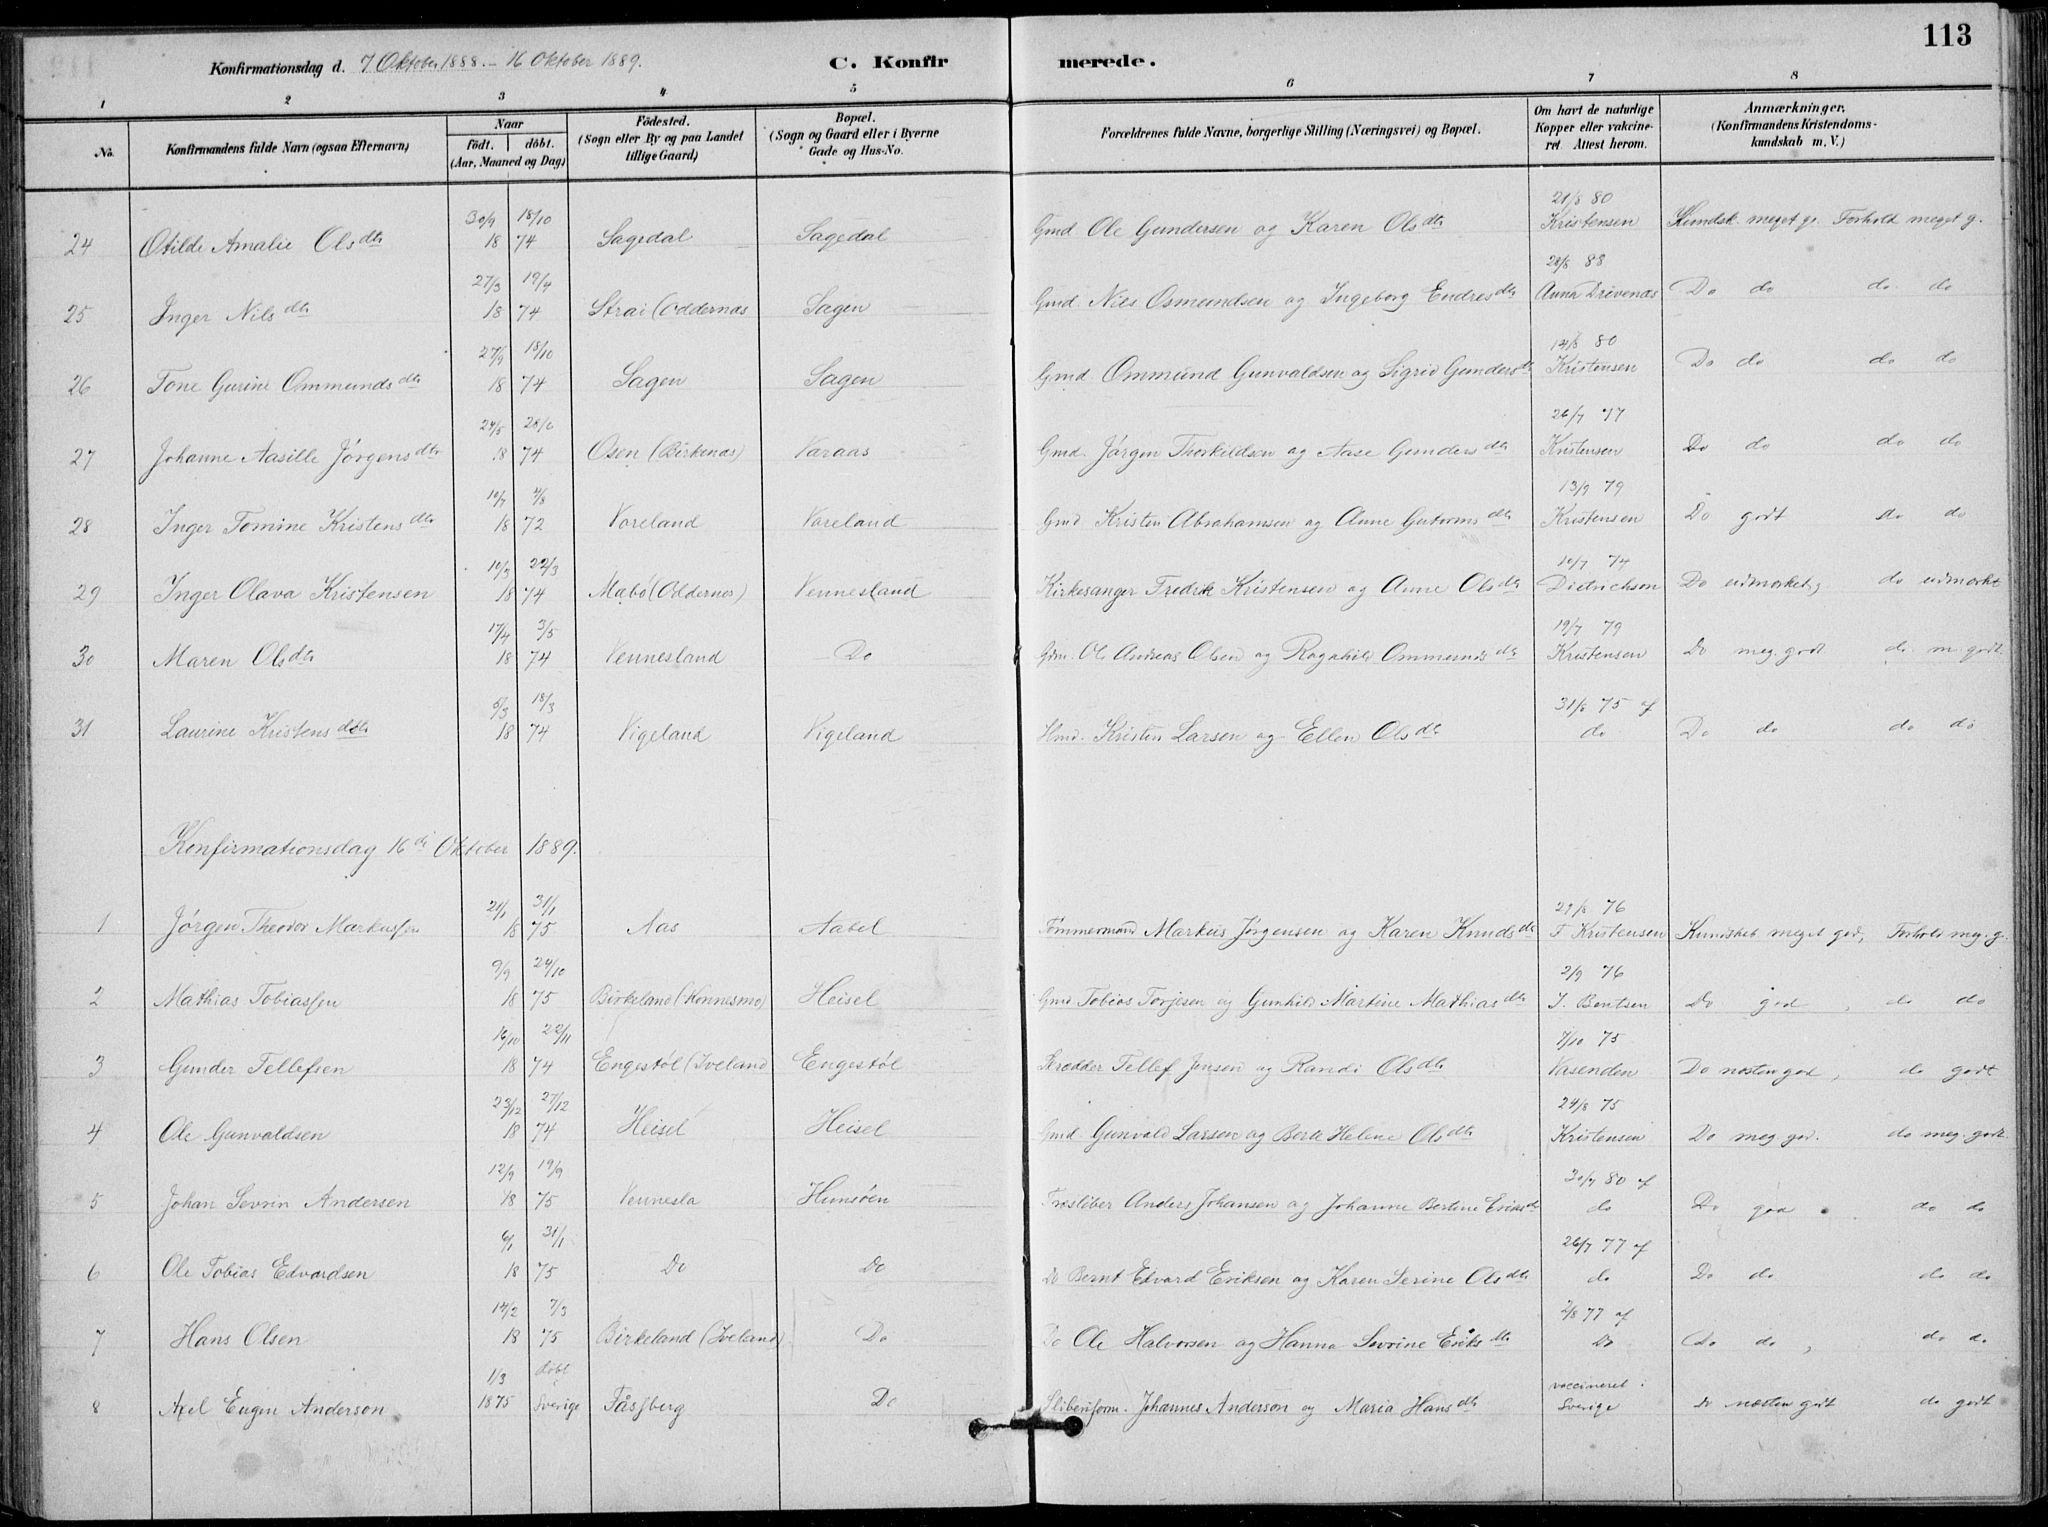 113
Konfirmationsdag d. 7 Oktober 1888 – 16 Oktober 1889. C. Konfirmerede.
1 2 3 4 5 6 7 8
No. Konfirmandens fulde Navn (ogsaa Efternavn) Naar födt. döbt. (Aar, Maaned og Dag) Födested. (Sogn eller By og paa Landet tillige Gaard) Bopæl. (Sogn og Gaard eller i Byerne Gade og Hus-No. Forældrenes fulde Navne, borgerlige Stilling (Næringsvei) og Bopæl. Om havt de naturlige Kopper eller vakcineret. Attest herom. Anmærkninger. (Konfirmandens Kristendomskundskab m. V.)
24 Otilde Amalie Olsdtr 30/9 18/10 18 74 Sagedal Sagedal Gmd Ole Gundersen og Karen Olsdtr 21/8 80 Kristensen Kundsk. meget g. Forhold meget g.
25 Inger Nilsdtr 27/3 19/4 18 74 Strai (Oddernæs Sagen Gmd. Nils Osmundsen og Ingeborg Endresdtr 28/8 88 Anna Drivenæs Do do do do
26 Tone Gurine Ommundsdtr 27/9 18/10 18 74 Sagen Sagen Gmd. Ommund Gunvaldsen og Sigrid Gundersdtr 14/8 80 Kristensen Do do do do
27 Johanne Aasille Jörgensdtr 24/5 28/6 18 74 Osen (Birkenæs) Varaas Gmd. Jörgen Thorkildsen og Aase Gundersdtr 26/7 77 Kristensen Do do do do
28 Inger Tomine Kristensdtr 10/7 4/8 18 72 Voreland Voreland Gmd Kristen Abrahamsen og Anne Gutormsdtr 13/9 79 Kristensen Do godt do do
29 Inger Olava Kristensen 10/3 22/3 18 74 Mæbö (Oddernes) Vennesland Kirkesanger Fredrik Kristensen og Anne Olsdtr 10/7 74 Dietrichson Do udmærket, do udmærket
30 Maren Olsdtr 17/4 3/5 18 74 Vennesland Do Gdm. Ole Andreas Olsen og Ragnhild Ommundsdtr 19/7 79 Kristensen Do meg. godt. do m. godt.
31 Laurine Kristensdtr 5/3 18/3 18 74 Vigeland Vigeland Hmd. Kristen Larsen og Ellen Olsdtr 31/8 75 af do Do do do do
Konfirmationsdag 16de Oktober 1889.
1 Jörgen Theodor Markussen 21/1 31/1 18 75 Aas Aabel Tömmermand Markus Jörgensen og Karen Knudsdtr 29/8 76 F Kristensen Kundskab meget god, Forhold meg. g.
2 Mathias Tobiassen 9/9 24/10 18 75 Birkeland (Honnesmo) Heisel Gmd Tobias Torjesen og Gunhild Martine Mathiasdtr 2/9 76 J. Bentsen Do god, do do
3 Gunder Tellefsen 16/10 22/11 18 74 Engestöl (Iveland Engestöl Skrædder Tellef Jensen og Randi Olsdtr 7/10 75 Vasenden Do næsten god, do godt
4 Ole Gunvaldsen 23/12 27/12 18 74 Heisel Heisel Gmd. Gunvald Larsen og Berte Helene Olsdtr 24/8 75 Kristensen Do meg god. do meg. godt.
5 Johan Sevrin Andersen 12/9 19/9 18 75 Vennesla Hunsöen Træsliber Anders Johansen og Johanne Bertine Eriksdtr 30/7 80 af do Do god. do do
6 Ole Tobias Edvardsen 6/1 31/1 18 75 Do Do Do Bernt Edvard Eriksen og Karen Serine Olsdtr 26/7 77 af do Do do do do
7 Hans Olsen 14/2 7/3 18 75 Birkeland (Iveland) Do Do Ole Halvorsen og Hanna Sevrine Eriksdtr 2/8 77 af Do Do do, do do
8 Axel Eugen Anderson 1/3 1875 döbt i Sverige Fässberg Do Sliberiform. Johannes Anderson og Maria Hansdtr vaccineret i Sverige do næsten godt do godt